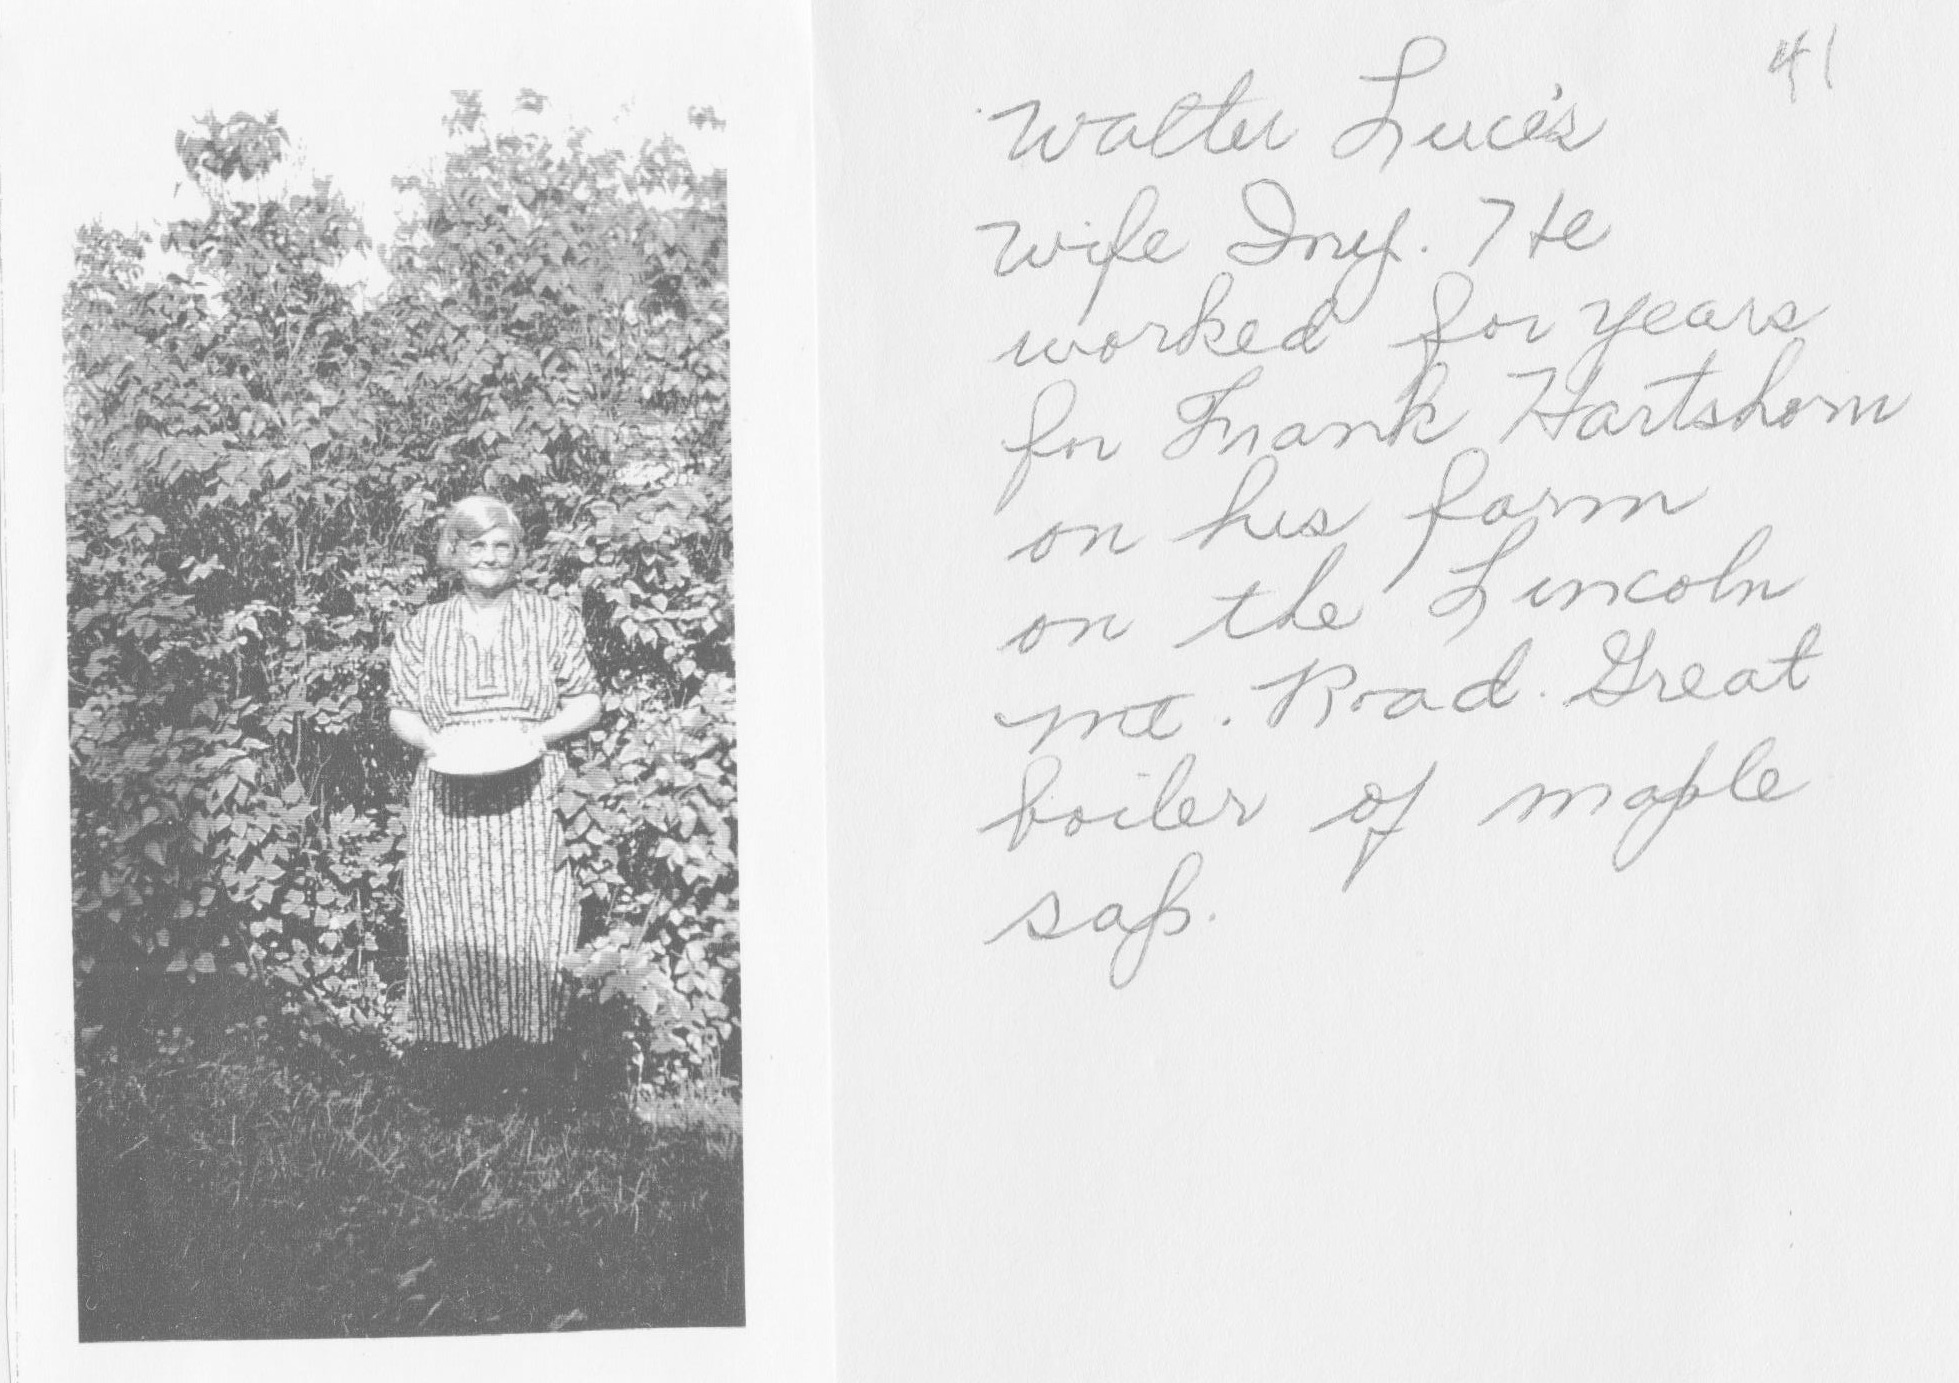 41
Walter Luce's
Wife Iny. He
worked for years
for Frank Hartshorn
on his farm
on the Lincoln
mt. Road. Great
boiler of maple
sap.